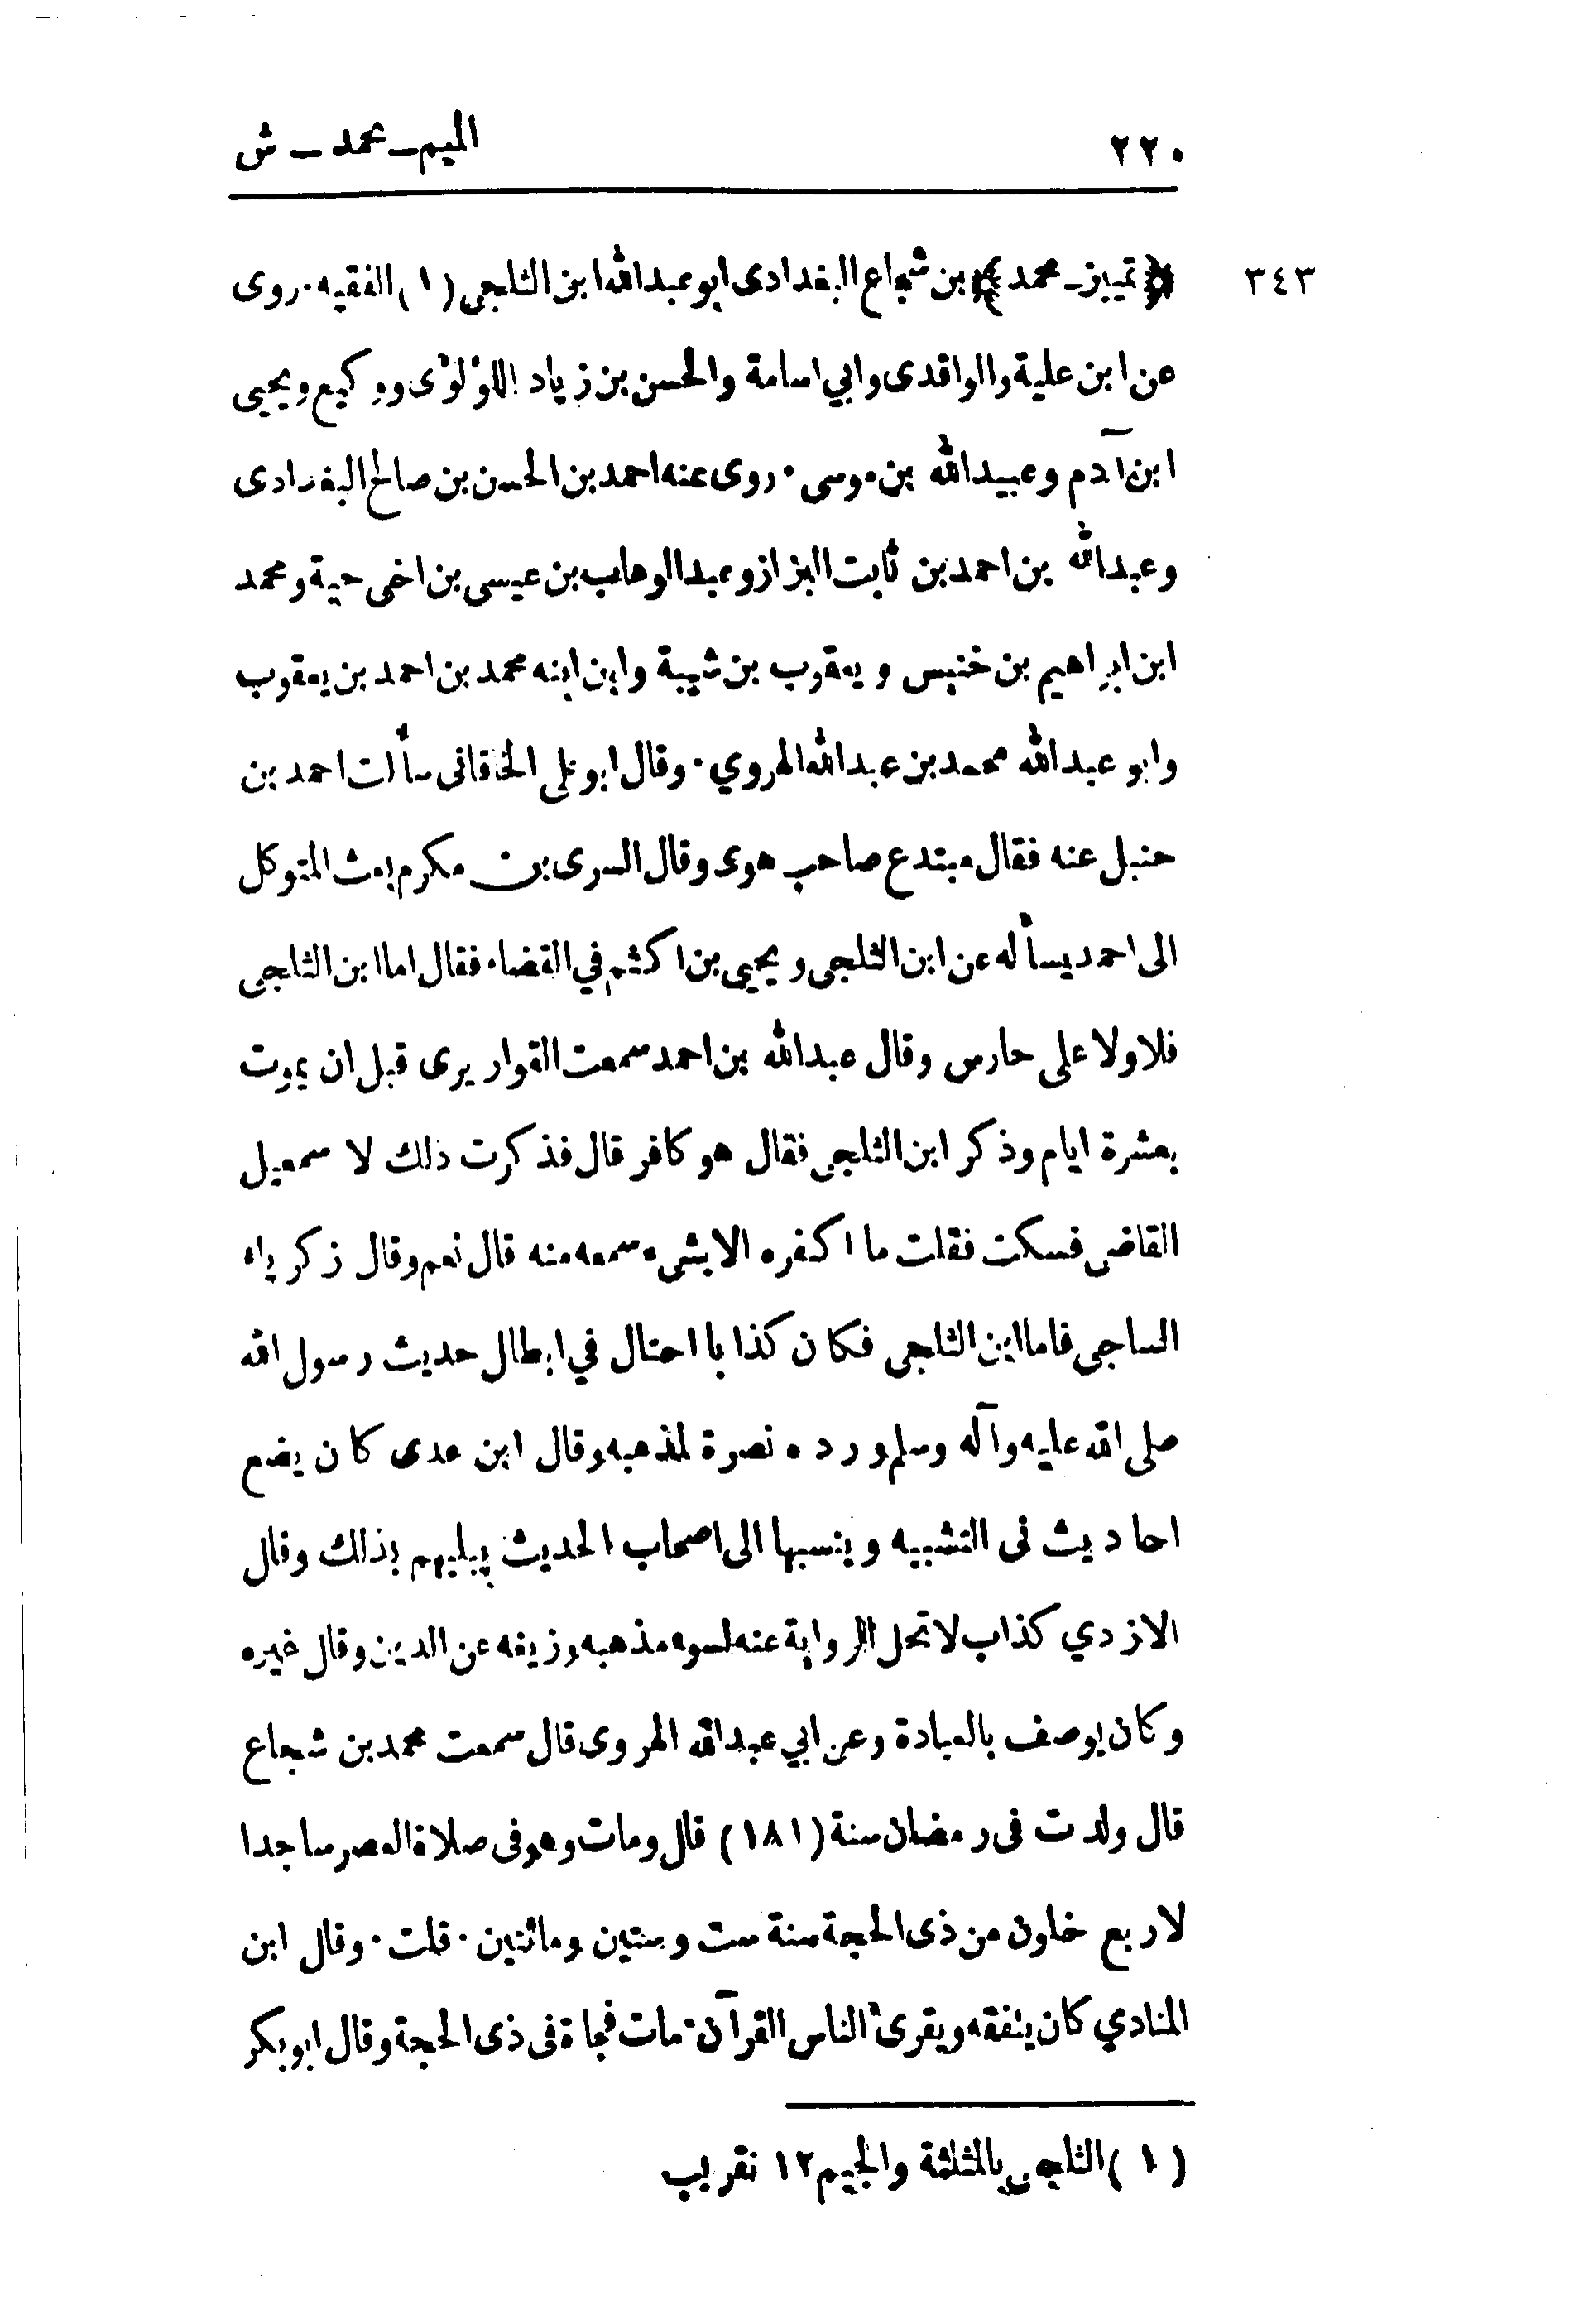 ٢٢٠
الميم ـ محمد ـ ش
٣٤٣
﴿ تمييز ـ محمد ﴾ بن شجاع البغدادى ابو عبد الله ابن الثلجي ( ١ ) الفقيه · روى
عن ابن علية والواقدى وابي اسامة والحسن بن زياد اللؤلؤى ووكيع ويحيى
ابن آدم وعبيد الله بن موسى · روى عنه احمد بن الحسن بن صالح البغدادى
وعبد الله بن احمد بن ثابت البزاز وعبد الوهاب بن عيسى بن اخى حية ومحمد
ابن ابراهيم بن خنبس ويعقوب بن شيبة وابن ابنه محمد بن احمد بن يعقوب
وابو عبد الله محمد بن عبد الله الهروي · وقال ابو على الخاقانى سألت احمد بن
حنبل عنه فقال مبتدع صاحب هوى وقال السرى بن مكرم بعث المتوكل
الى احمد يسأله عن ابن الثلجى ويحيى بن اكثم في القضاء فقال اما ابن الثلجى
فلا ولا على حارس وقال عبد الله بن احمد سمعت القواريرى قبل ان يموت
بعشرة ايام وذكر ابن الثلجى فقال هو كافر قال فذكرت ذلك لا سمعيل
القاضى فسكت فقلت ما اكفره الا بشىء سمعه منه قال نعم وقال زكرياء
الساجى فاما ابن الثلجى فكان كذابا احتال في ابطال حديث رسول الله
صلى الله عليه وآله وسلم ورده نصرة لمذهبه وقال ابن عدى كان يضع
احاديث فى التشبيه وينسبها الى اصحاب الحديث يبليهم بذلك وقال
الازدي كذاب لا تحل الرواية عنه لسوء مذهبه وزيغه عن الدين وقال غيره
وكان يوصف بالعبادة وعن ابي عبد الله الهروى قال سمعت محمد بن شجاع
قال ولدت فى رمضان سنة ( ١٨١ ) قال ومات وهو فى صلاة العصر ساجدا
لاربع خلون من ذى الحجة سنة ست وستين ومائتين · قلت · وقال ابن
المنادي كان يتفقه ويقرئ الناس القرآن · مات فجاة فى ذى الحجة وقال ابو بكر
( ١ ) الثلجى بالمثلثة والجيم ١٢ تقريب